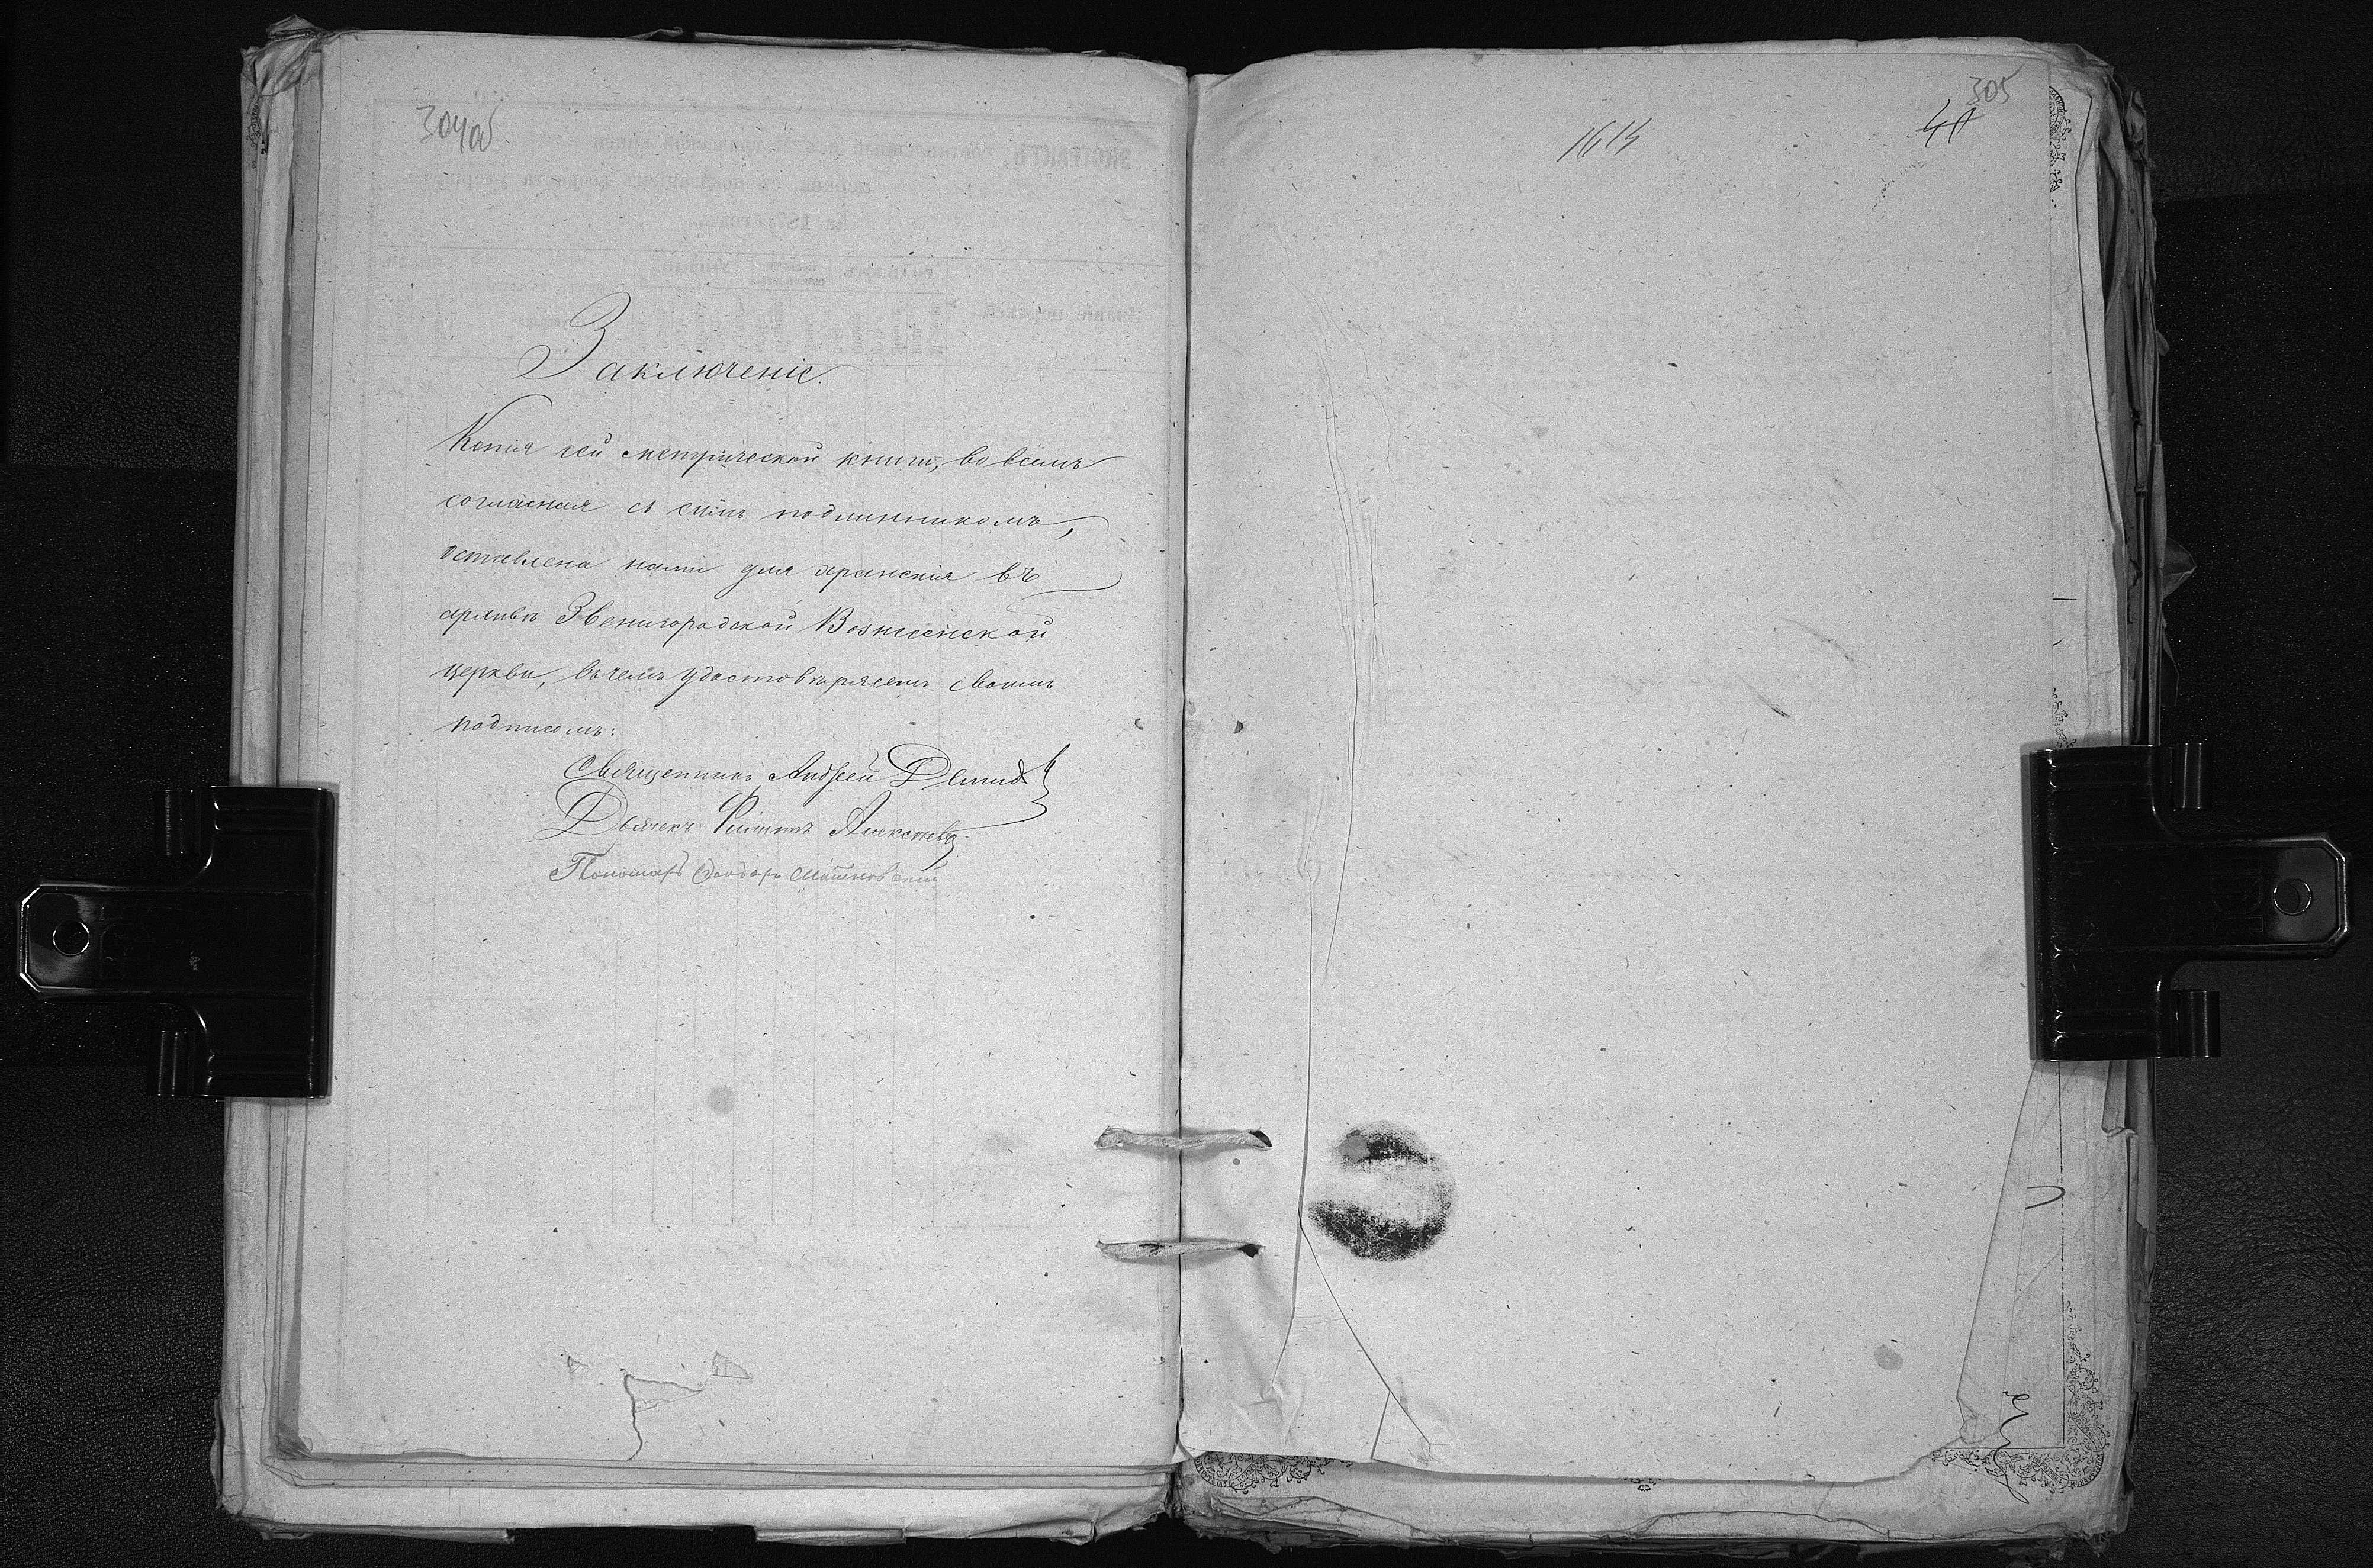 304об
Заключеніе.
Копія сей метрической книги, во всемъ
согласная съ симъ подлинникомъ,
оставлена нами для храненія въ
архивѣ Звенигородской Вознесенской
церкви, въ чемъ удостовѣряемъ своимъ
подписомъ:
Священникъ Андрей
Дьячекъ Филиппъ Алексѣевъ
Пономарь Ѳеодоръ
305
1614